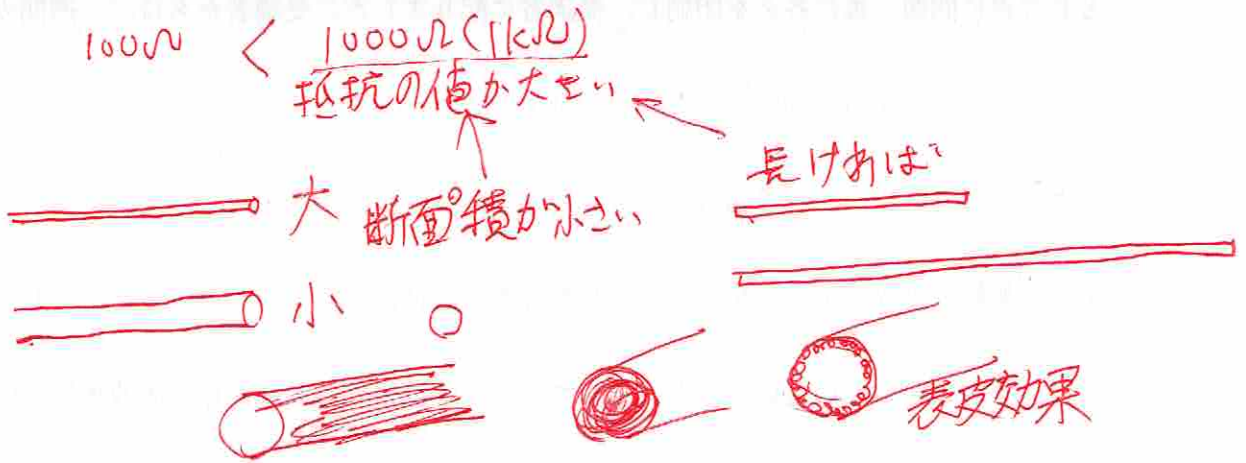 100Ω < 1000Ω(1kΩ)
抵抗の値が大きい
長ければ
大 断面積が小さい
小
表皮効果